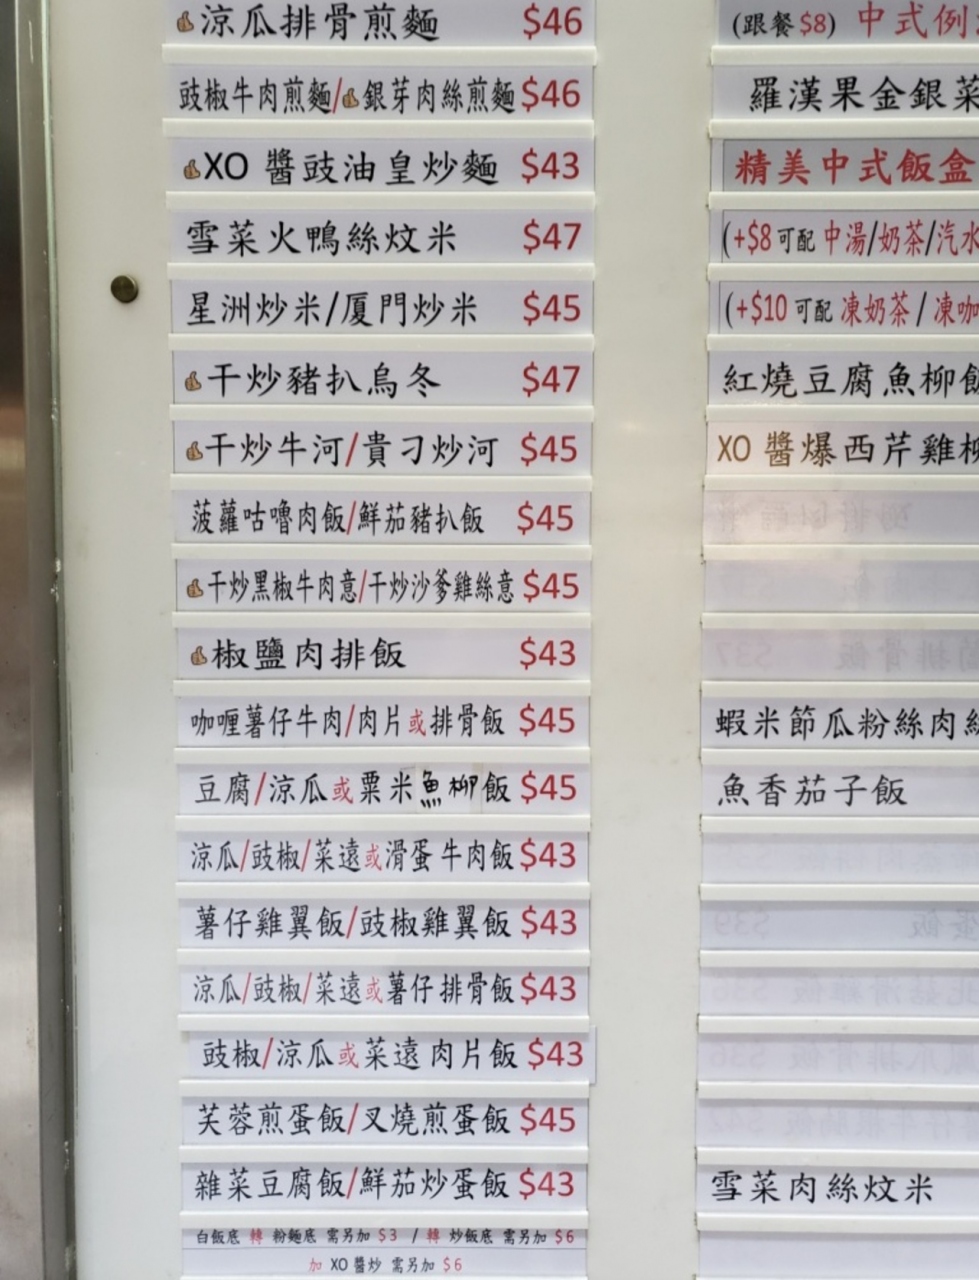 涼瓜排骨煎麵 $46
豉椒牛肉煎麵/銀芽肉絲煎麵 $46
XO 醬豉油皇炒麵 $43
雪菜火鴨絲炆米 $47
星洲炒米/厦門炒米 $45
干炒豬扒烏冬 $47
干炒牛河/貴刁炒河 $45
菠蘿咕嚕肉飯/鮮茄豬扒飯 $45
干炒黑椒牛肉意/干炒沙爹雞絲意 $45
椒鹽肉排飯 $43
咖喱薯仔牛肉/肉片或排骨飯 $45
豆腐/涼瓜或粟米魚柳飯 $45
涼瓜/豉椒/菜遠或滑蛋牛肉飯 $43
薯仔雞翼飯/豉椒雞翼飯 $43
涼瓜/豉椒/菜遠或薯仔排骨飯 $43
豉椒/涼瓜或菜遠肉片飯 $43
芙蓉煎蛋飯/叉燒煎蛋飯 $45
雜菜豆腐飯/鮮茄炒蛋飯 $43
白飯底 轉 粉麵底 需另加 $3 / 轉 炒飯底 需另加 $6
加 XO 醬炒 需另加 $6
(跟餐 $8) 中式例
羅漢果金銀菜
精美中式飯盒
(+$8 可配 中湯/奶茶/汽水
(+$10 可配 凍奶茶 / 凍咖
紅燒豆腐魚柳飯
XO 醬爆西芹雞柳
蝦米節瓜粉絲肉絲
魚香茄子飯
雪菜肉絲炆米